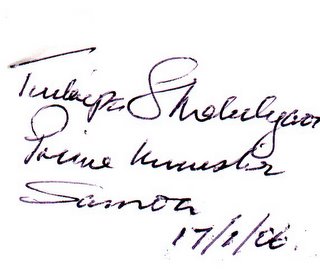 Tuilaepa S Malielegaoi
Prime Minister
Samoa
17/1/06.